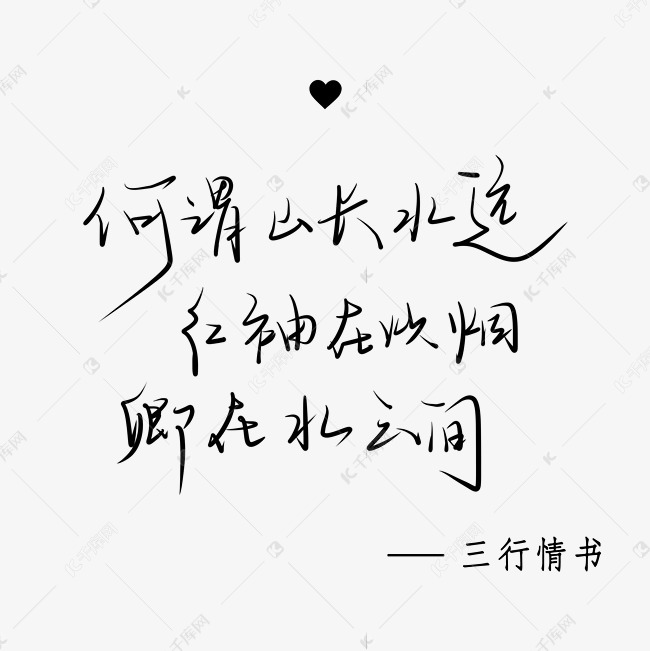 何谓山长水远
红袖在炊烟
卿在水云间
—— 三行情书